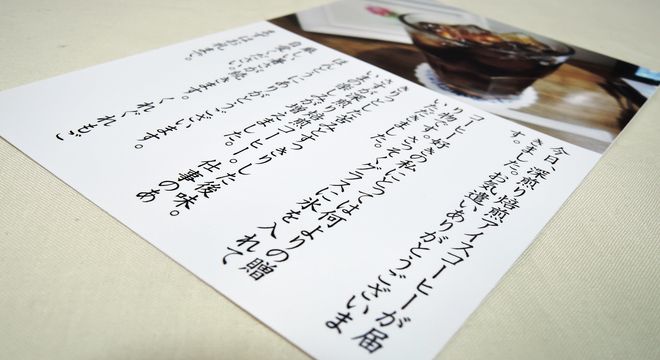 今日、深煎り焙煎アイスコーヒーが届
きました。お気遣いありがとうございま
す。
コーヒー好きの私にとっては何よりの贈
り物です。さっそくグラスに氷を入れて
いただきました。
りっとした苦みとすっきりした後味。
さすが深煎り焙煎コーヒー。仕事のあ
いまの楽しみが増えました。
ほんとうにありがとうございます。
厳しい暑さが続きます。くれぐれもご
自愛ください。
まずはお礼まで。